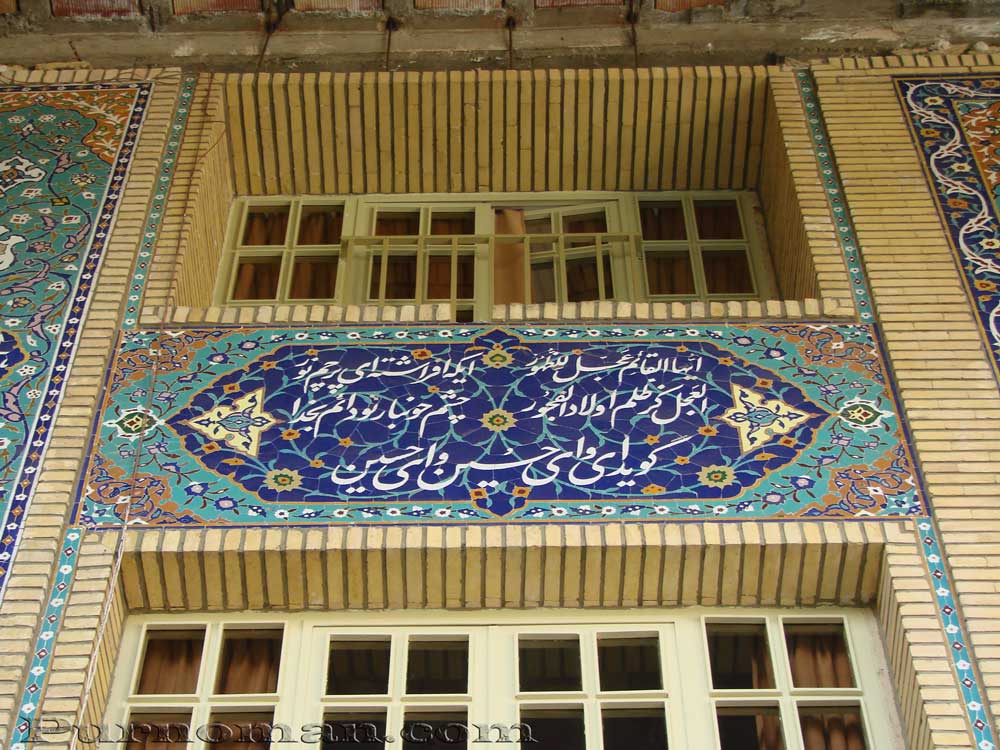 ایها القائم عجل للظهور ایکه افراشته ای پرچم
العجل کز ظلم اولاد الفجور چشم خونبار تو دائم بخدا
گوید ای وای حسین وای حسین
Purnoman.com